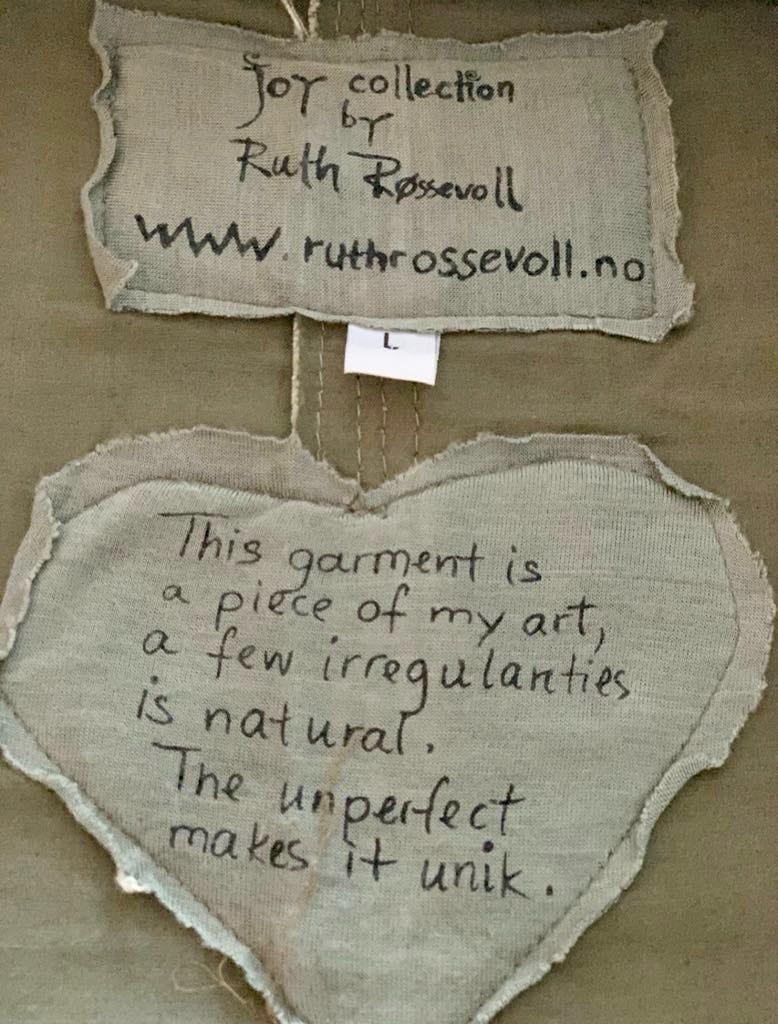 joy collection
by
Ruth Røssevoll
www.ruthrossevoll.no
L
This garment is
a piece of my art,
a few irregularities
is natural.
The unperfect
makes it unik.